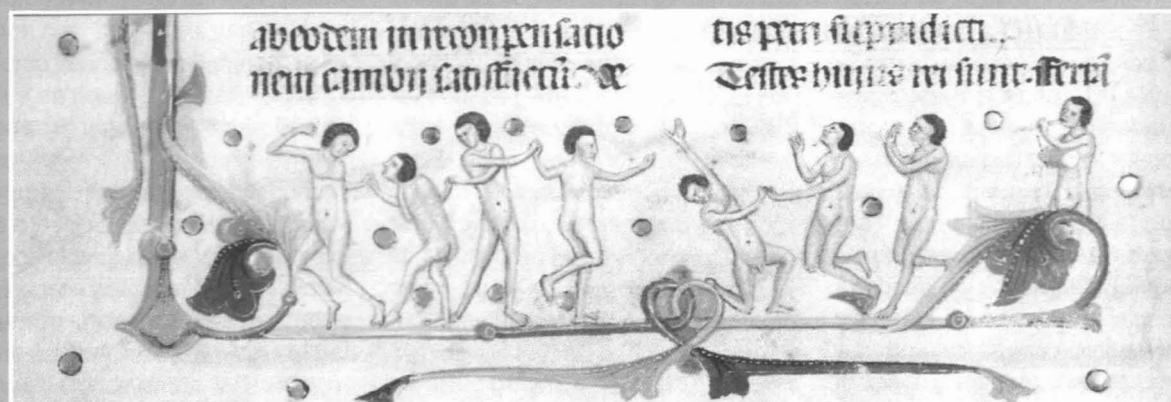 ab eodem in recompensatio
nem cambii satisfactũ de
tis petri supradicti.
Testes huius rei sunt. fferrã